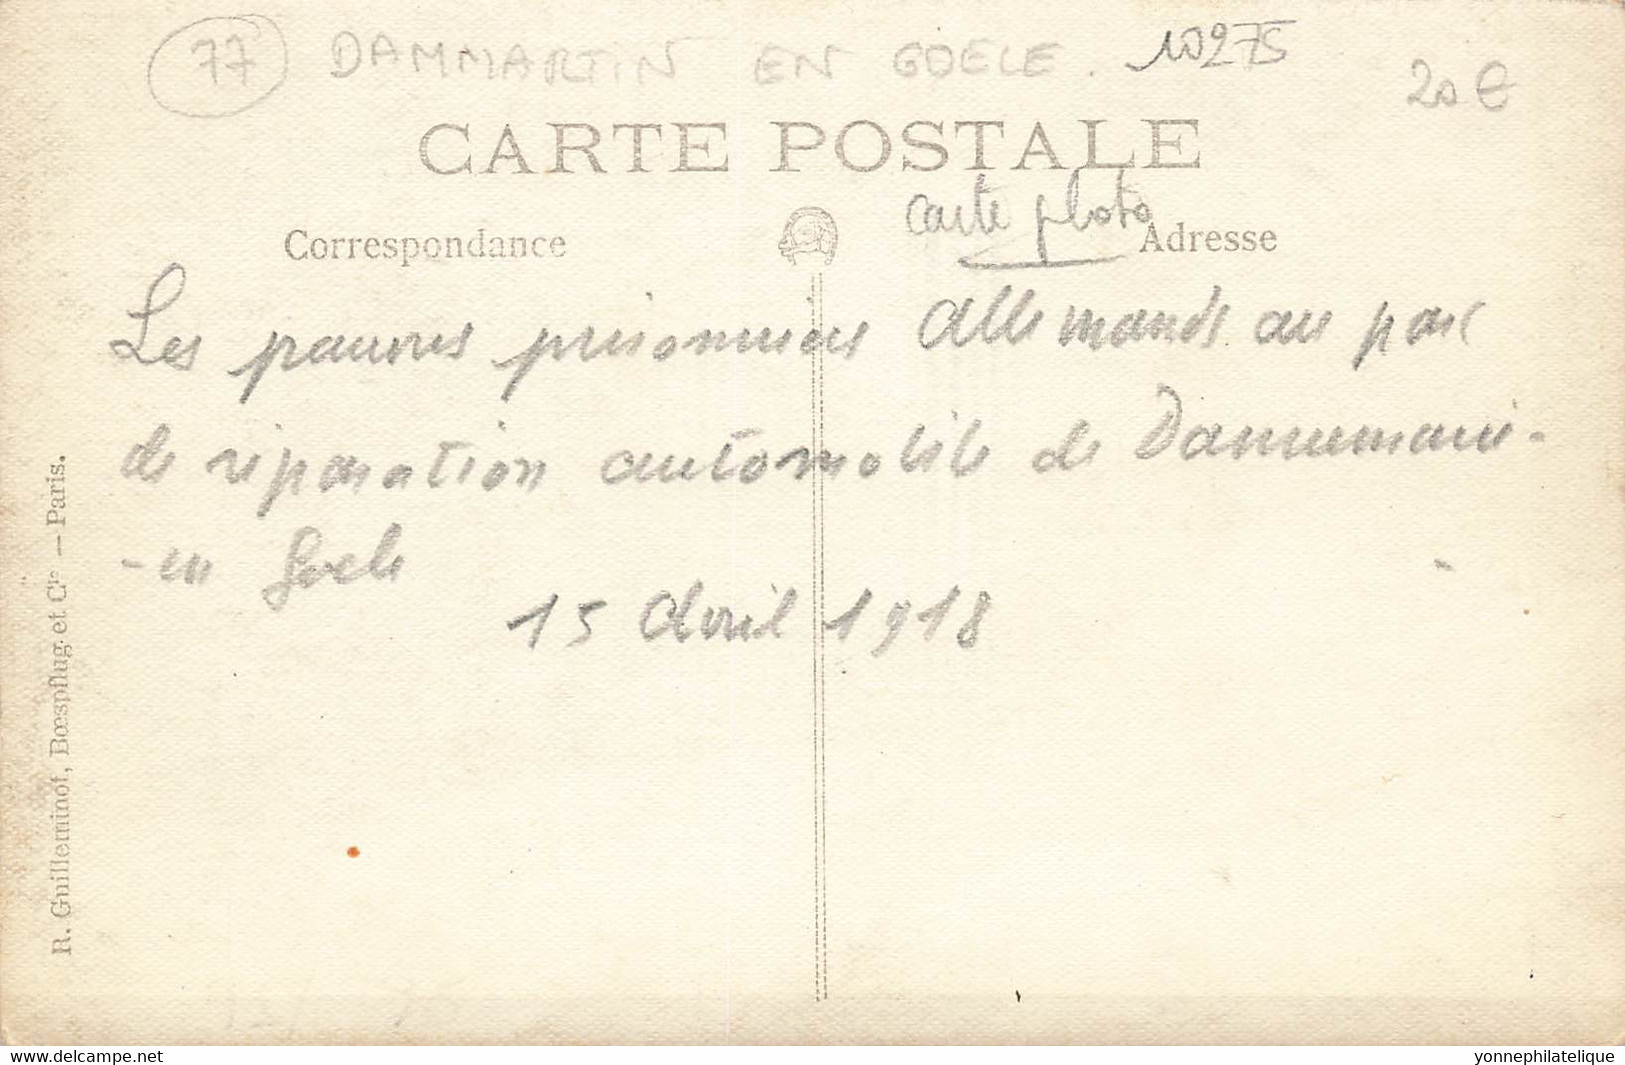 77 DAMMARTIN EN GOELE. 10275
20 €
CARTE POSTALE
carte photo
Correspondance
Adresse
Les pauvres prisonniers Allemands au parc
de réparation automobile de Dammemari-
-en Goele
15 Avril 1918
R. Guilleminot, Bœspflug. et Cie — Paris.
www.delcampe.net
yonnephilatelique